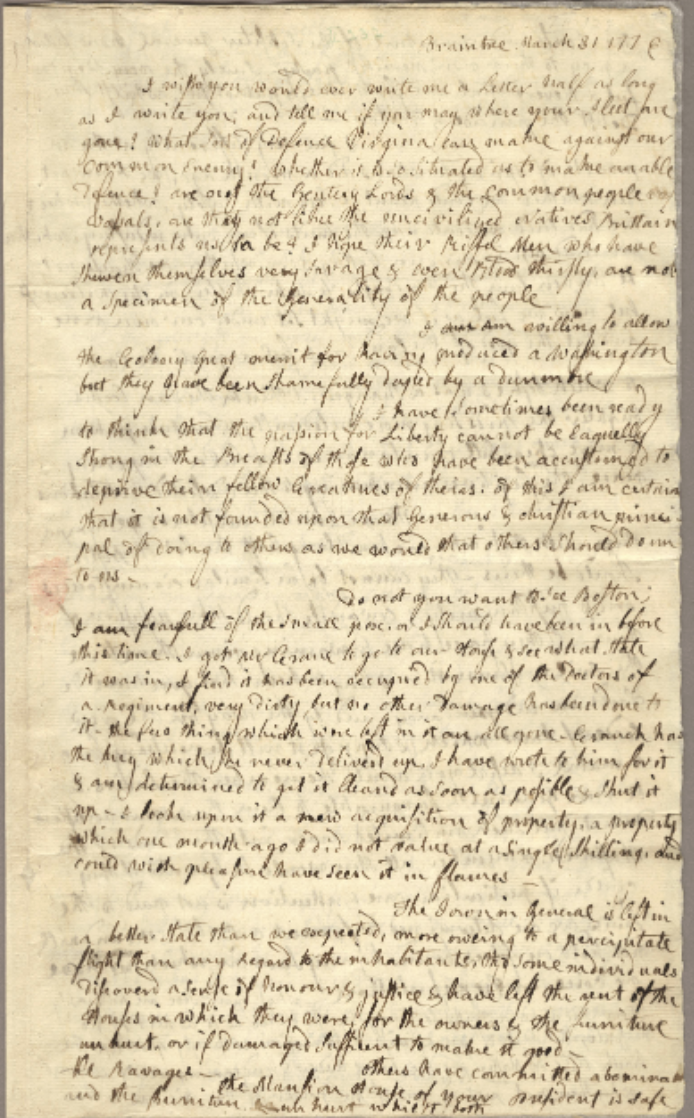 Braintree March 31 1776
I wish you would ever write me a Letter half as long
as I write you; and tell me if you may where your Fleet are
gone? What sort of Defence Virginia can make against our
common Enemy? Whether it is so situated as to make an able
Defence? are not the Gentery Lords & the common people
vassals, are they not like the uncivilized natives Brittain
represents us to be? I hope their Riffel Men who have
shewen themselves very savage & even Blood thirsty; are not
a specimen of the Generality of the people
I am willing to allow
the Colony great merrit for having produced a Washington
but they have been shamefully duped by a Dunmore
I have sometimes been ready
to think that the passion for Liberty cannot be Eaquelly
strong in the Breasts of those who have been accustomed to
deprive their fellow Creatures of theirs. of this I am certain
that it is not founded upon that generous & christian princi-
pal of doing to others as we would that others should do un
to us -
Do not you want to see Boston;
I am fearfull of the small pox, or I should have been in before
this time. I got Mr Crane to go to our House & see what state
it was in, I find it has been occupied by one of the Doctors of
a Regiment, very dirty but no other Damage has been done to
it - the few things which were left in it are all gone. Cranch has
the key which he never deliverd up, I have wrote to him for it
& am determined to get it cleand as soon as posible & shut it
up - I look upon it a new acquisition of property, a property
which one month ago I did not value at a single shilling, and
could with pleasure have seen it in flames -
The Town in General is left in
a better state than we expected, more oweing to a percipitate
flight than any Regard to the inhabitants, tho some individuals
discoverd a sense of honour & justice & have left the rent of the
Houses in which they were, for the owners & the furniture
unhurt, or if damaged sufficent to make it good -
others have committed abominable
Ravages -
the Mansion House of your President is safe
and the furniture unhurt whilst both